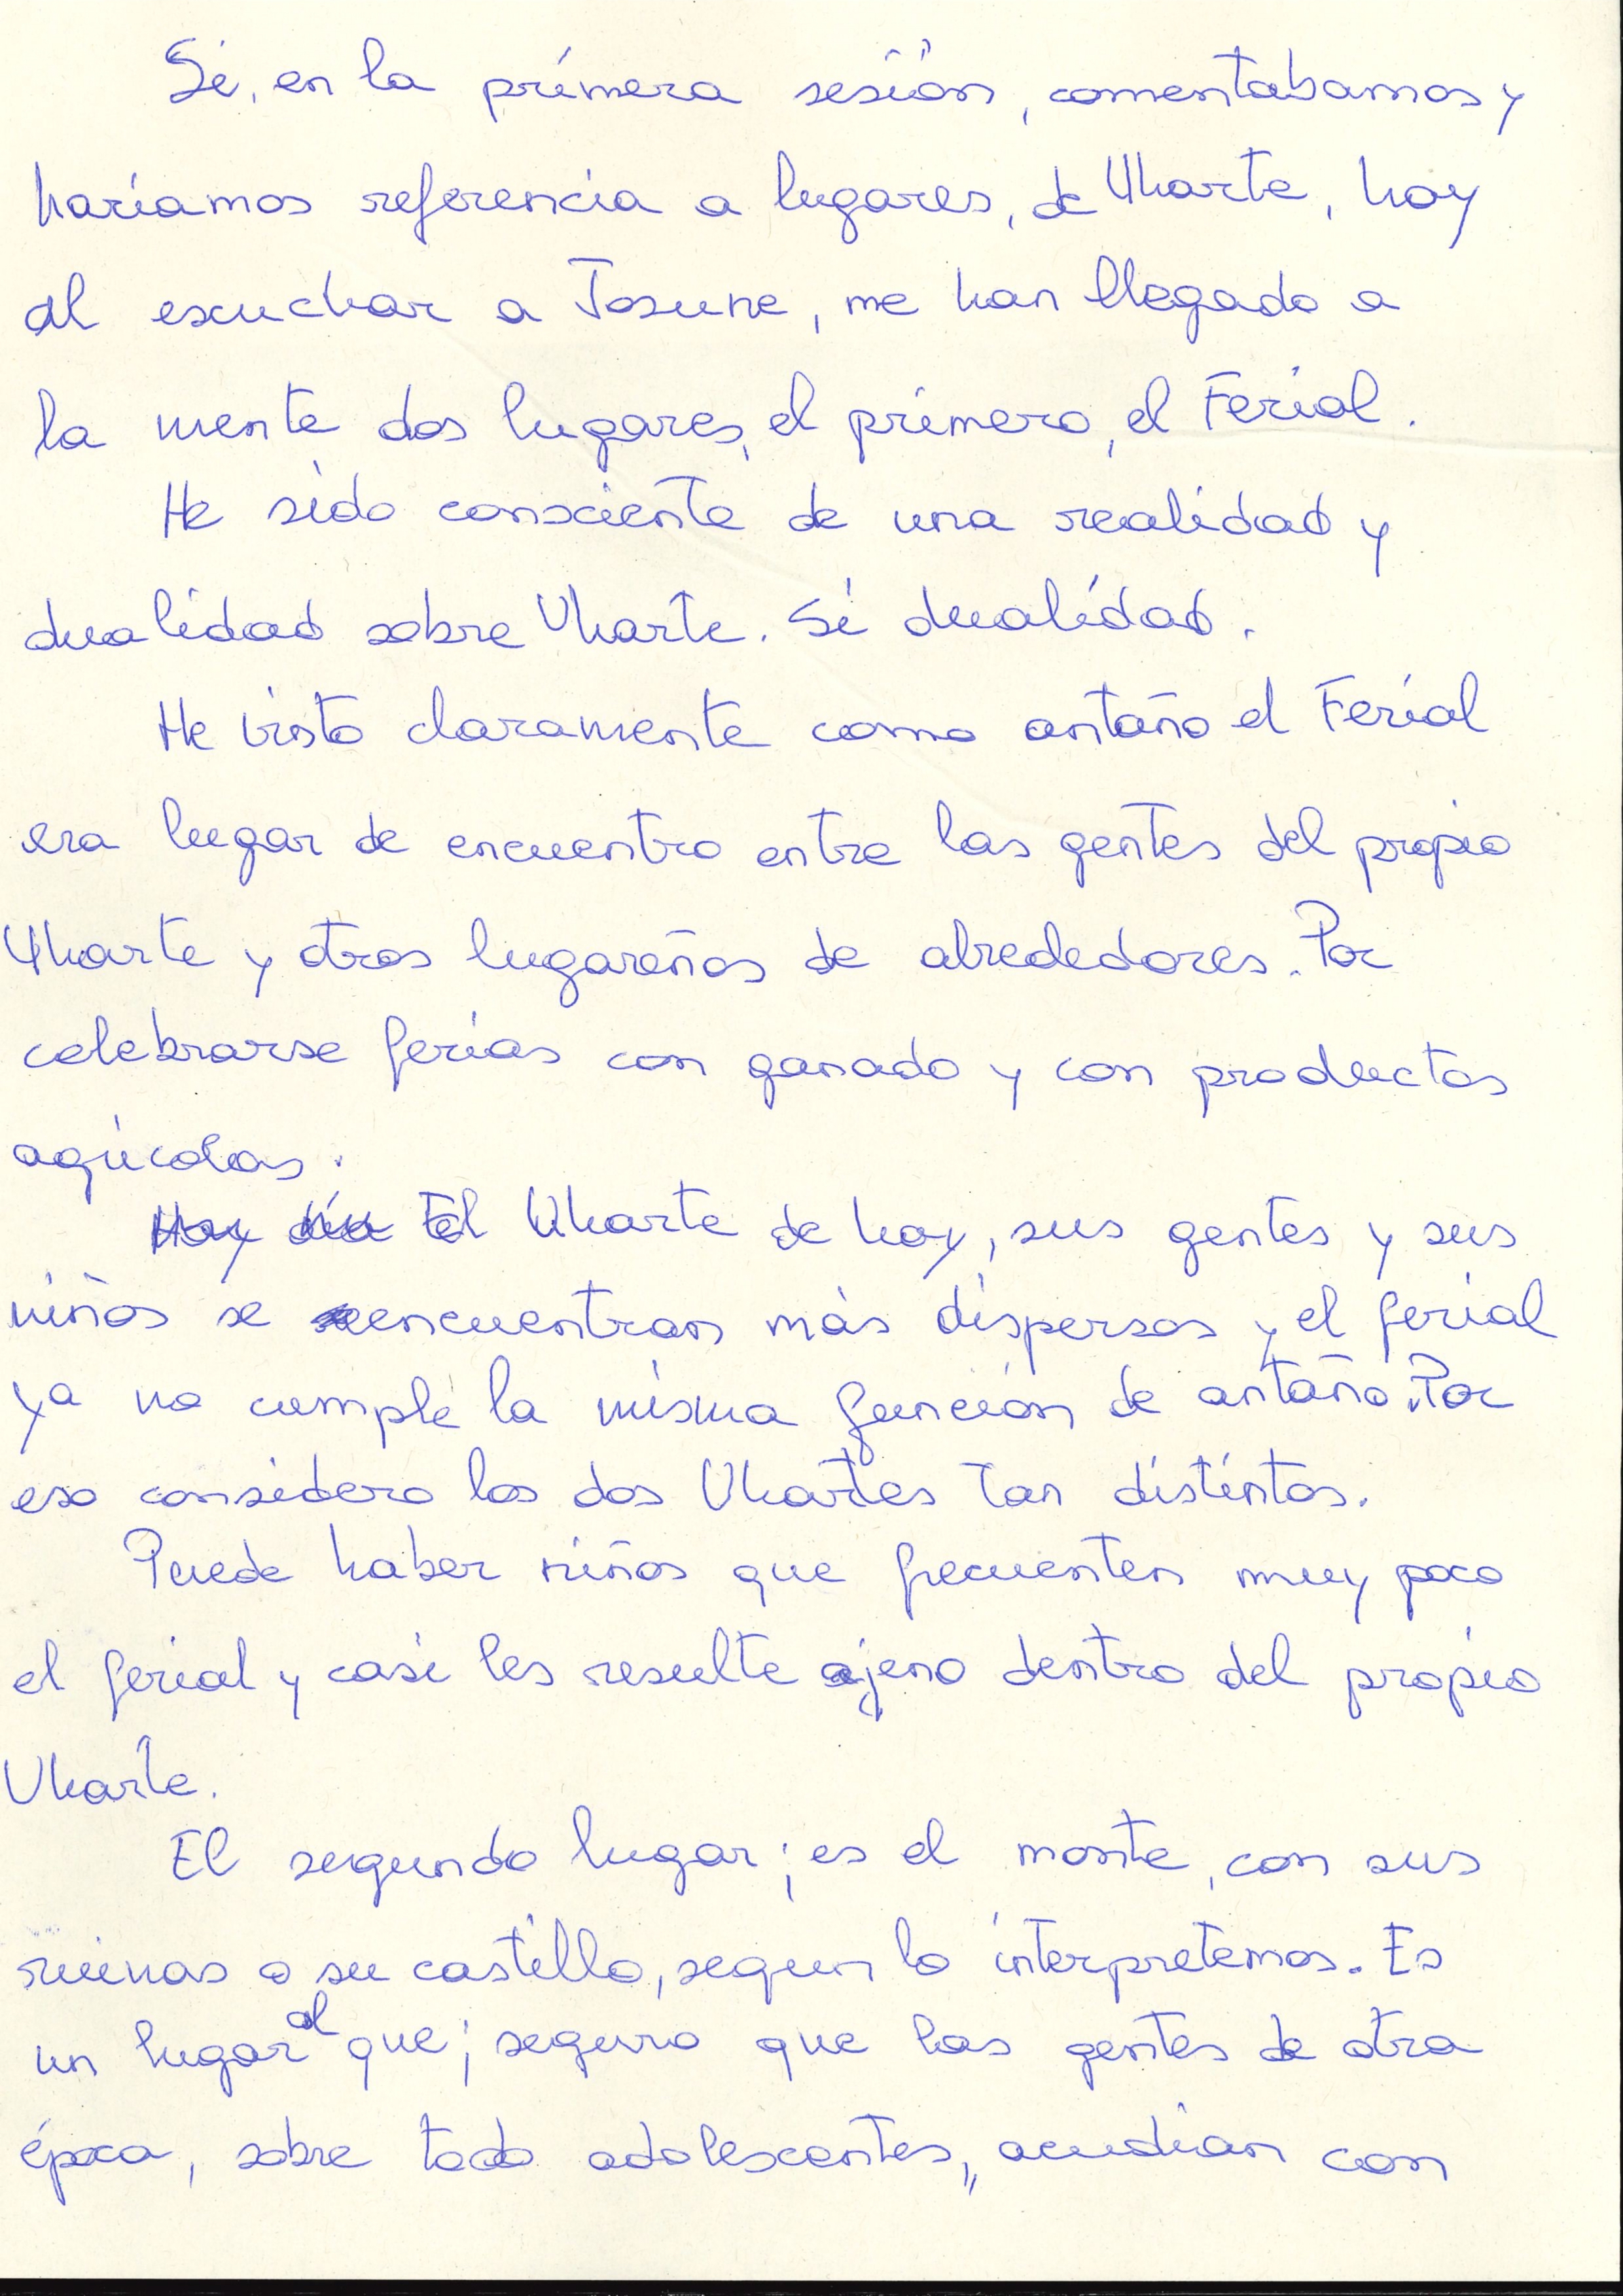 Si, en la primera sesión, comentabamos y
haríamos referencia a lugares, de Uharte, hoy
al escuchar a Josune, me han llegado a
la mente dos lugares, el primero, el Ferial.
He sido consciente de una realidad y
dualidad sobre Uharte. Si dualidad.
He visto claramente como antaño el Ferial
era lugar de encuentro entre las gentes del propio
Uharte y otros lugareños de alrededores. Por
celebrarse ferias con ganado y con productos
agrícolas.
Hoy día El Uharte de hoy, sus gentes y sus
niños se encuentran más dispersos y el ferial
ya no cumple la misma función de antaño. Por
eso considero los dos Uhartes tan distintos.
Puede haber niños que frecuenten muy poco
el ferial y casi les resulte ajeno dentro del propio
Uharte.
El segundo lugar; es el monte, con sus
ruinas o su castillo, segun lo interpretemos. Es
un lugar al que; seguro que las gentes de otra
época, sobre todo adolescentes, acudian con